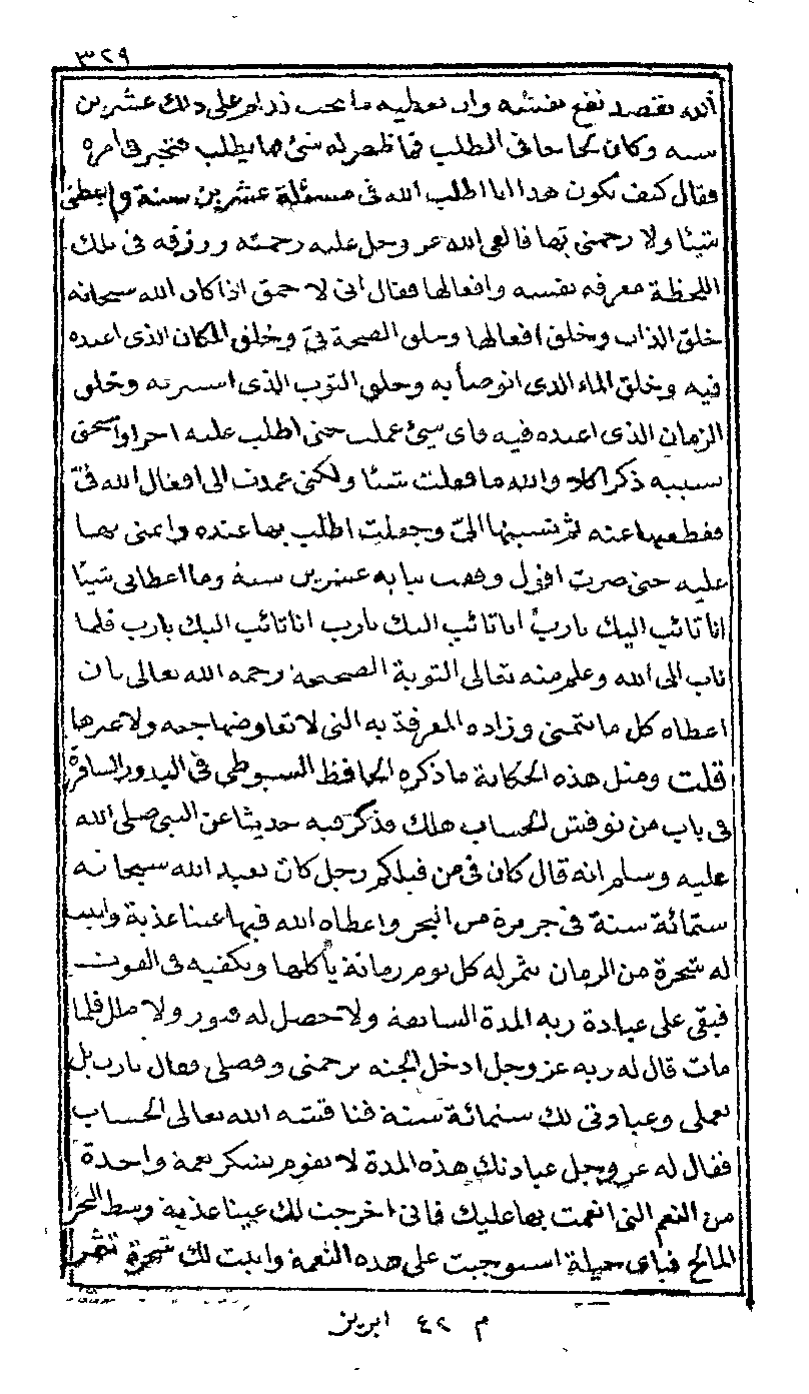 ٣٢٩
الله بقصد نفع نفسه وان يعطيه ما يحب فدام على ذلك عشرين
سنة وكان في الطلب فما ظهر له شئ مما يطلب فتحير في امره
فقال كيف يكون هذا انا اطلب الله في مسئلة عشرين سنة وما اعطني
شيئا ولا رحمني بها فالقى الله عز وجل عليه رحمته ورزقه في تلك
اللحظة معرفة نفسه وافعالها فقال اني لاحمق اذا كان الله سبحانه
خلق الذات وخلق افعالها وخلق الصحة في وخلق المكان الذى اعبده
فيه وخلق الماء الذى اتوضأ به وخلق الثوب الذى استتر به وخلق
الزمان الذى اعبده فيه فاى شئ عملت حتى اطلب عليه اجرا واستحق
بسببه ذكرا كلا والله ما فعلت شيئا ولكنى عمدت الى افعال الله في
فقطعتها عنه ثم نسبتها الى وجعلت اطلب بها عنده واتمنى بها
عليه حتى صرت اقول وقفت ببابه عشرين سنة وما اعطانى شيئا
انا تائب اليك يارب انا تائب اليك يارب انا تائب اليك يارب فلما
تاب الى الله وعلم منه تعالى التوبة الصحيحة رحمه الله تعالى بان
اعطاه كل ما يتمنى وزاده المعرفة به التى لا تعاوضها جنة ولا غيرها
قلت ومثل هذه الحكاية ما ذكره الحافظ السيوطى في البدور السافرة
في باب من نوقش الحساب هلك فذكر فيه حديثا عن النبي صلى الله
عليه وسلم انه قال كان في من قبلكم رجل كان يعبد الله سبحانه
ستمائة سنة في جزيرة من البحر واعطاه الله فيها عينا عذبة وانبت
له شجرة من الرمان تثمر له كل يوم رمانة يأكلها وتكفيه في القوت
فبقى على عبادة ربه المدة السابقة ولا حصل له فتور ولا ملل فلما
مات قال له ربه عز وجل ادخل الجنة برحمتى وفضلى فقال يارب بل
بعملى وعبادتى لك ستمائة سنة فناقشه الله تعالى الحساب
فقال له عز وجل عبادتك هذه المدة لا تقوم بشكر نعمة واحدة
من النعم التى انعمت بها عليك فانى اخرجت لك عينا عذبة وسط البحر
المالح فباى حيلة استوجبت على هذه النعمة وانبت لك شجرة تثمر
م ٤٢ ابريز